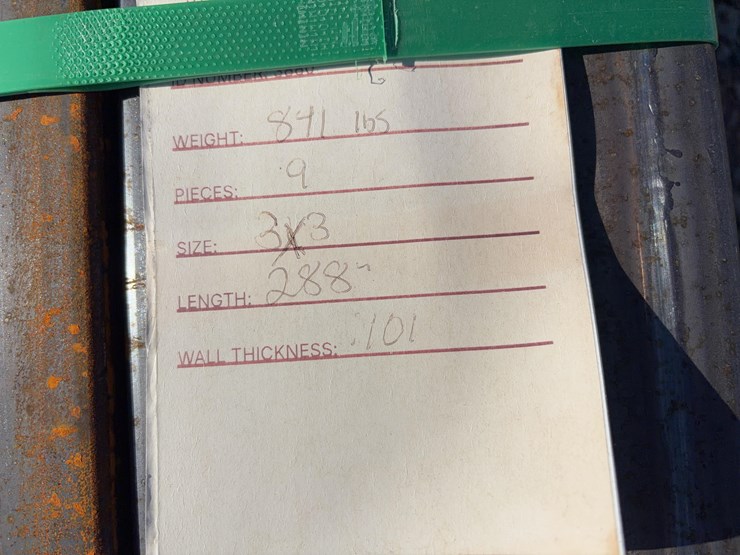 WEIGHT: 841 lbs
PIECES: 9
SIZE: 3x3
LENGTH: 288"
WALL THICKNESS: .101